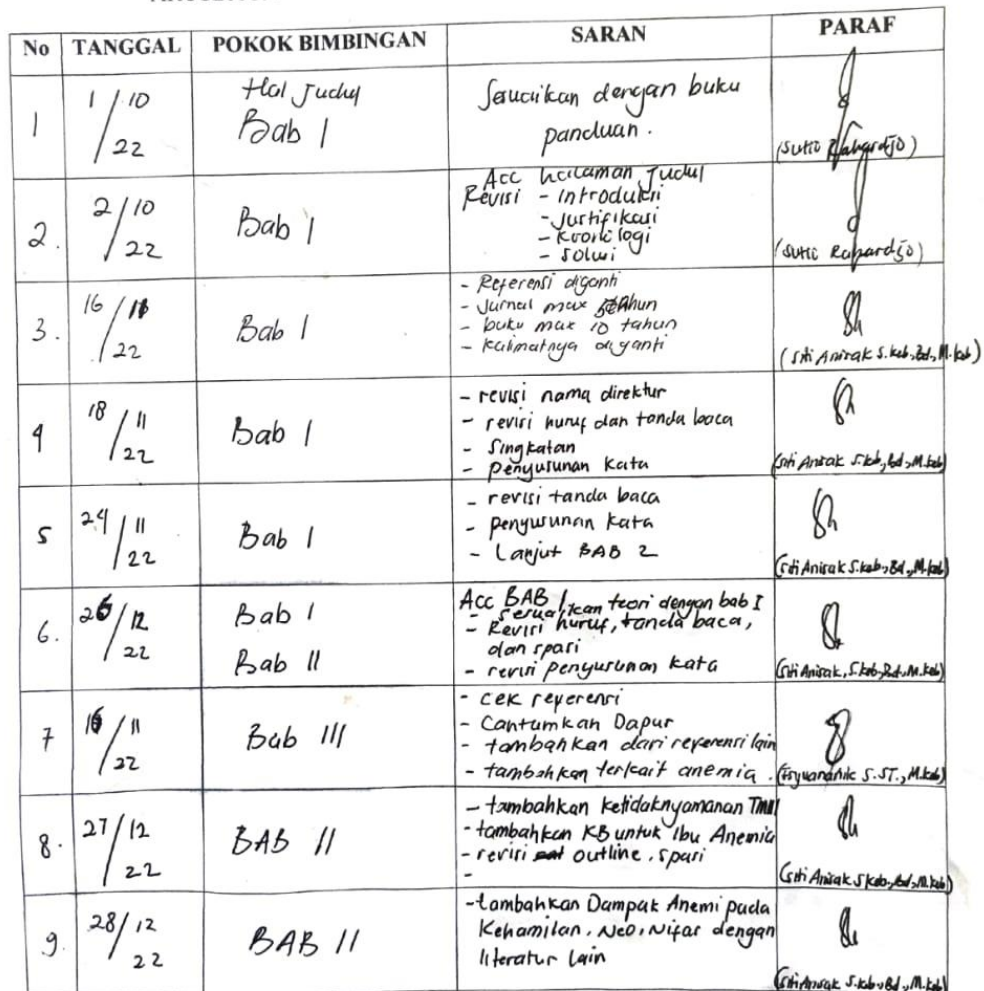 No TANGGAL POKOK BIMBINGAN SARAN PARAF
1 1/10/22 Hal Judul
Bab I
Sesuaikan dengan buku
panduan.
(Sutio Rahardjo)
2. 2/10/22 Bab I
Acc halaman Judul
Revisi - introduksi
- justifikasi
- kronologi
- solusi
(Sutio Rahardjo)
3. 16/11/22 Bab I
- Referensi diganti
- Jurnal max 5 tahun
- buku max 10 tahun
- kalimatnya diganti
(Siti Anisak S.keb., Bd., M.keb)
4 18/11/22 Bab I
- revisi nama direktur
- revisi huruf dan tanda baca
- Singkatan
- penyusunan kata
(Siti Anisak S.keb., Bd., M.keb)
5 24/11/22 Bab I
- revisi tanda baca
- penyusunan kata
- Lanjut BAB 2
(Siti Anisak S.keb., Bd., M.keb)
6. /12/22 Bab I
Bab II
Acc BAB I
- sesuaikan teori dengan bab I
- Revisi huruf, tanda baca,
dan spasi
- revisi penyusunan kata
(Siti Anisak, S.keb., Bd., M.keb)
7 /11/22 Bab III
- cek referensi
- Cantumkan Dapur
- tambahkan dari referensi lain
- tambahkan terkait anemia.
S.ST., M.keb)
8. 27/12/22 BAB II
- tambahkan ketidaknyamanan
- tambahkan KB untuk Ibu Anemia
- revisi outline, spasi
-
(Siti Anisak S.keb., Bd., M.keb)
9. 28/12/22 BAB II
- tambahkan Dampak Anemi pada
Kehamilan, Neo, Nifas dengan
literatur lain
(Siti Anisak S.keb., Bd., M.keb)